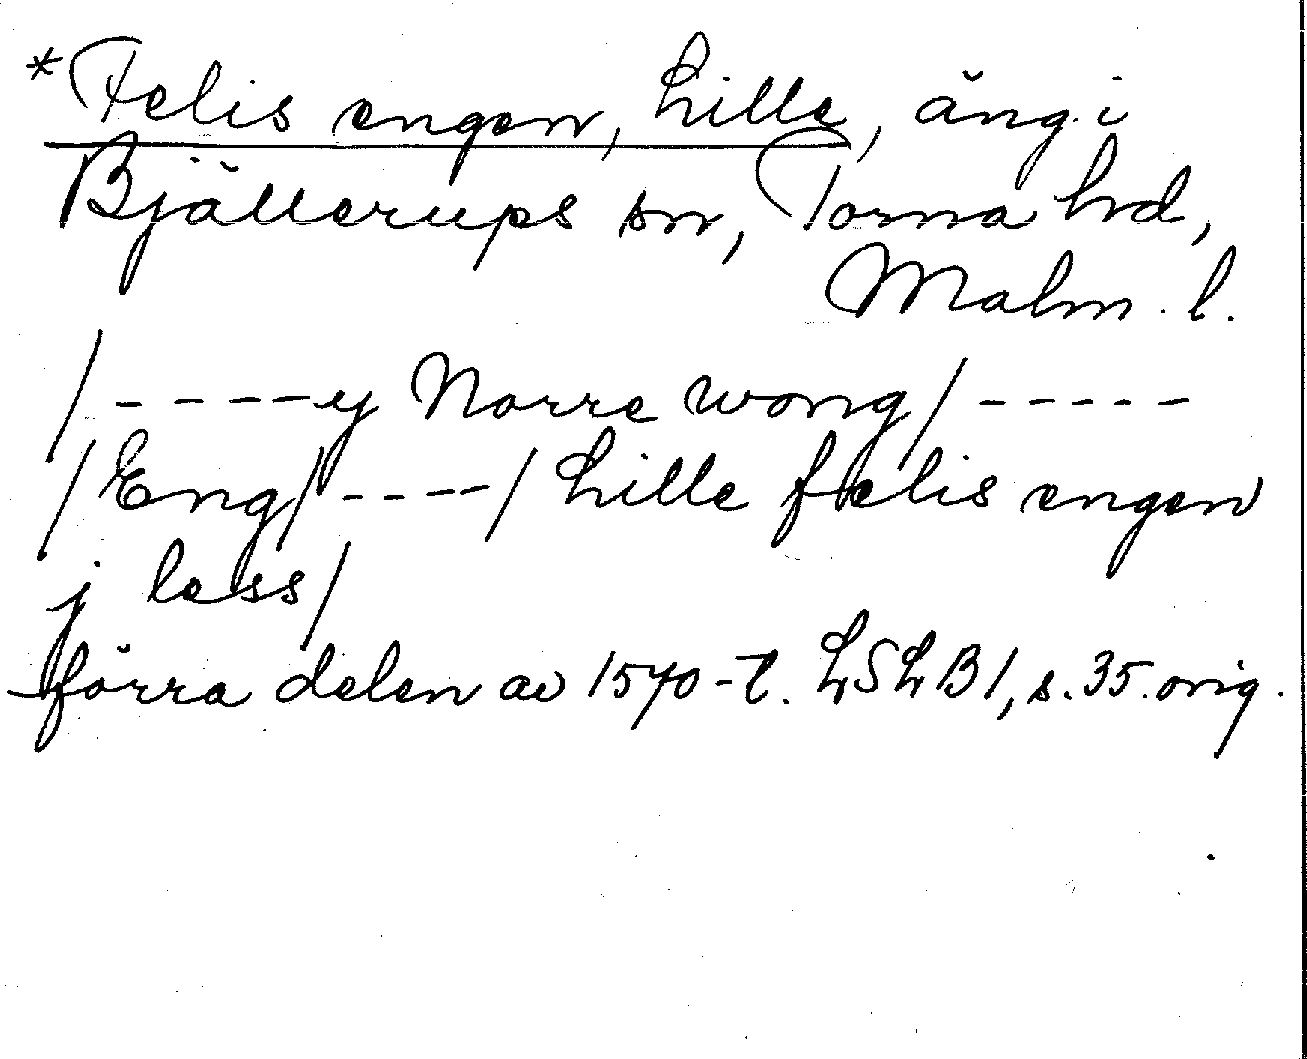 *Felis engen, Lille, äng i
Bjällerups sn, Torna hd,
Malm. l.
/----y Norre wong/-----
/Eng/----/Lille felis engen
j less/
förra delen av 1570-t. LSLB1, s. 35. orig.